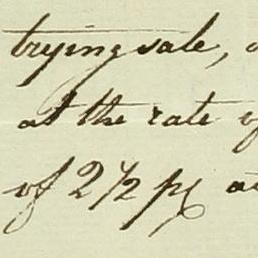 trying sale,
at the rate
of 2 1/2 p%